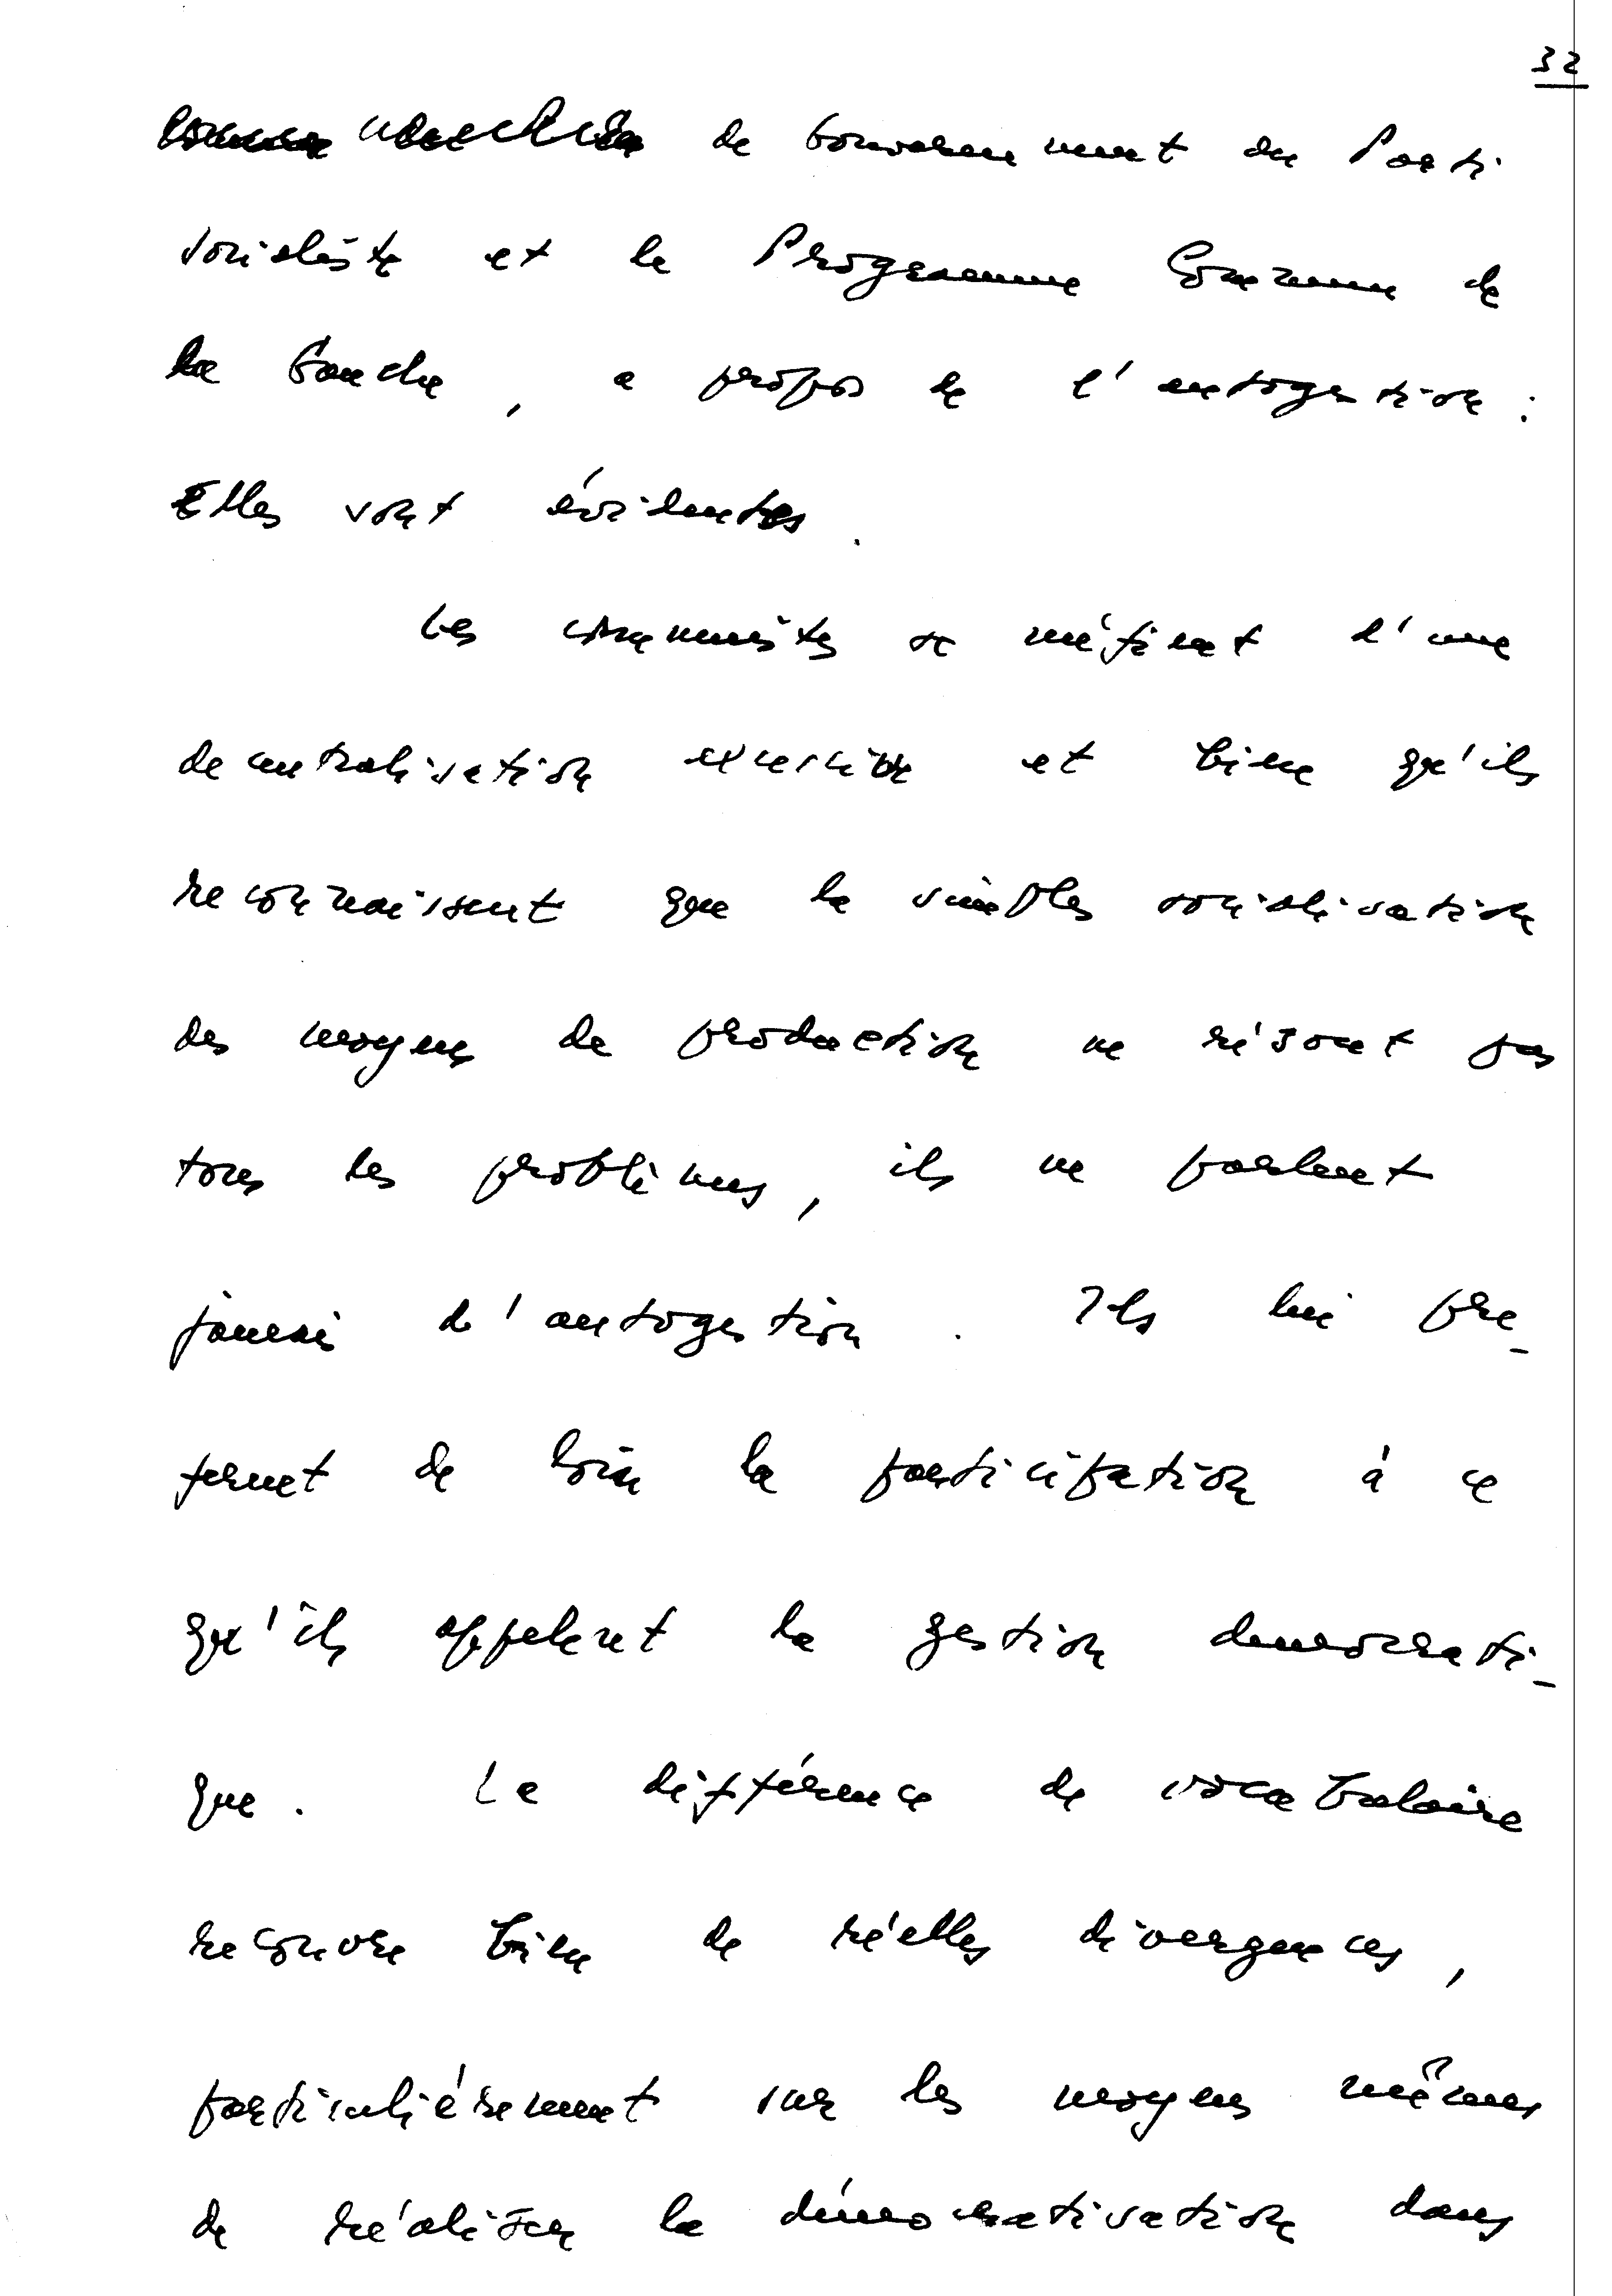 32
de Gouvernement du Parti
socialiste et le Programme Commun de
la Gauche, a propos de l'autogestion :
Elles sont évidentes.
Les communistes se méfient d'une
decentralisation excessive et bien qu'ils
reconnaissent que la simples socialisation
des moyens de production ne résout pas
tous les problèmes, ils ne parlent
jamais de l'autogestion. Ils lui pre-
ferent de loin la participation à ce
qu'ils appelent la gestion democrati-
que. La différence de vocabulaire
recouvre bien de réelles divergences,
particuliérement sur les moyens mêmes
de réaliser la démocratisation dans